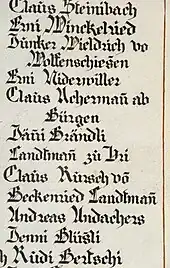 Claus Steinibach
Erni Winckelried
Junker Wieldrich vo
Wolfenschiesen
Erni Niderwiller
Claus Acherman̄ ab
Bürgen
Jäni Brändli
Landtman̄ zů Uri
Claus Rürsch vō
Beckenried Landtman̄
Andreas Andachers
Jenni Blüsli
Rüdi Bertschi